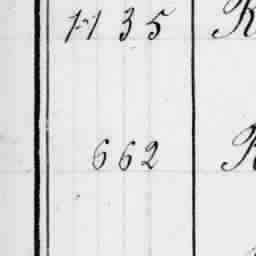 1135 R
662 R